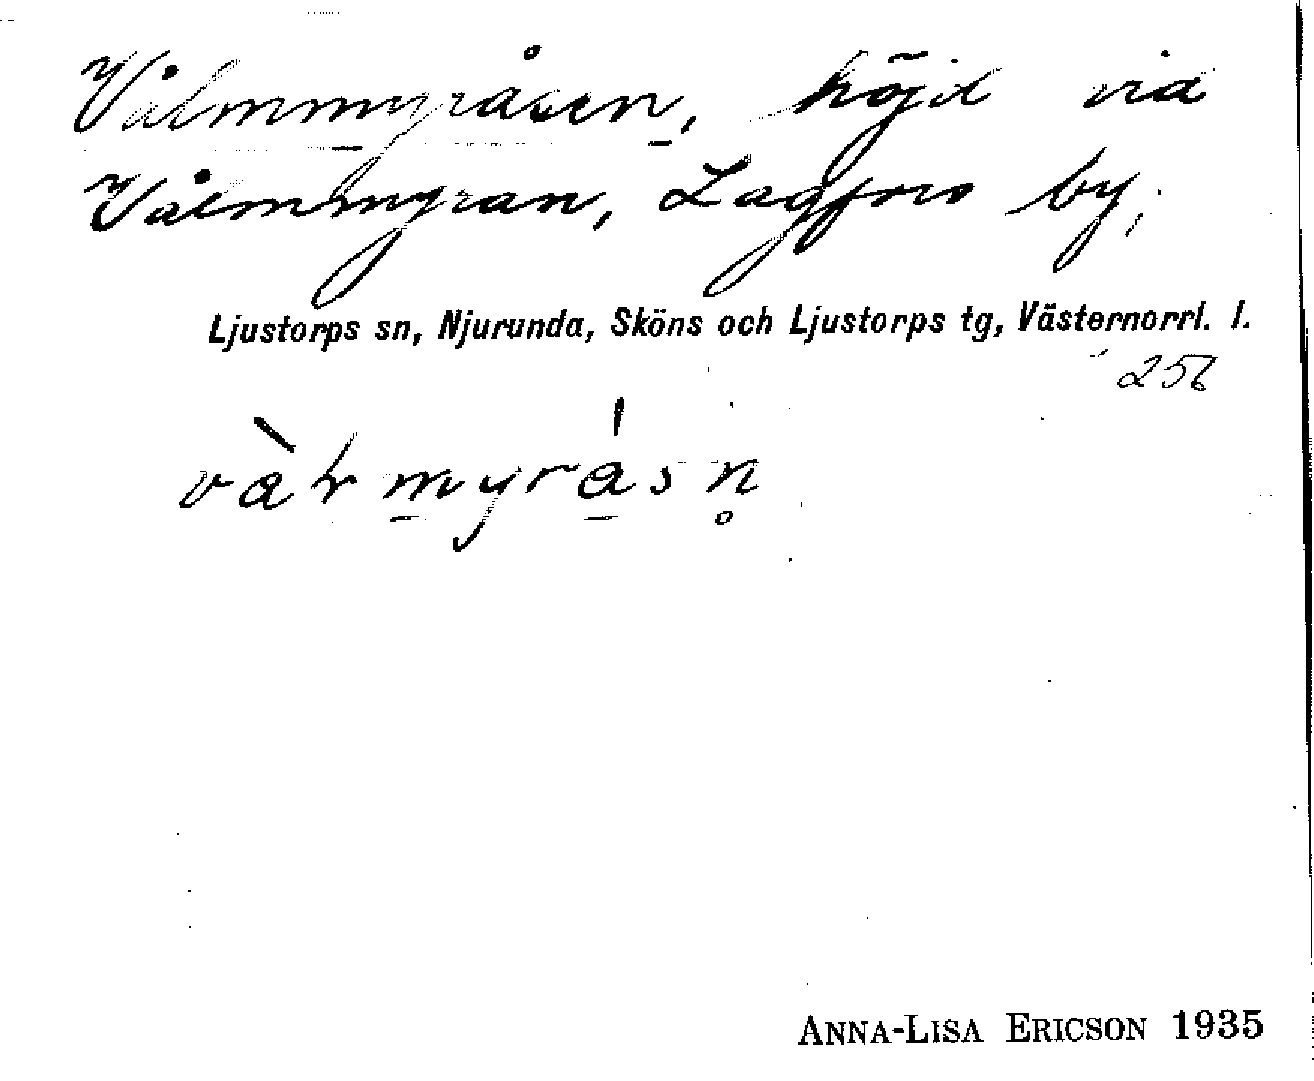 Vålmmyråsen, höjd vid
Vålmmyran, Lagfors by,
Ljustorps sn, Njurunda, Sköns och Ljustorps tg, Västernorrl. l.
256
ANNA-LISA ERICSON 1935